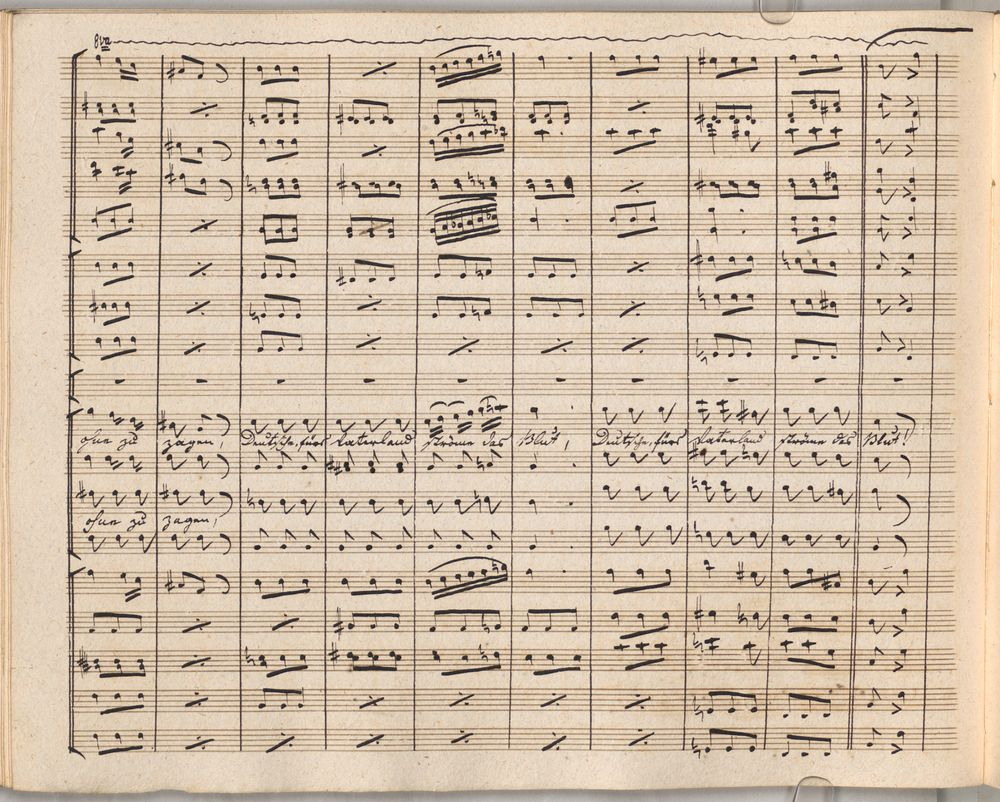 8va
ohne zu zagen, Deutsche, fürs Vaterland ströme das Blut, Deutsche, fürs Vaterland ströme das Blut!
ohne zu zagen,